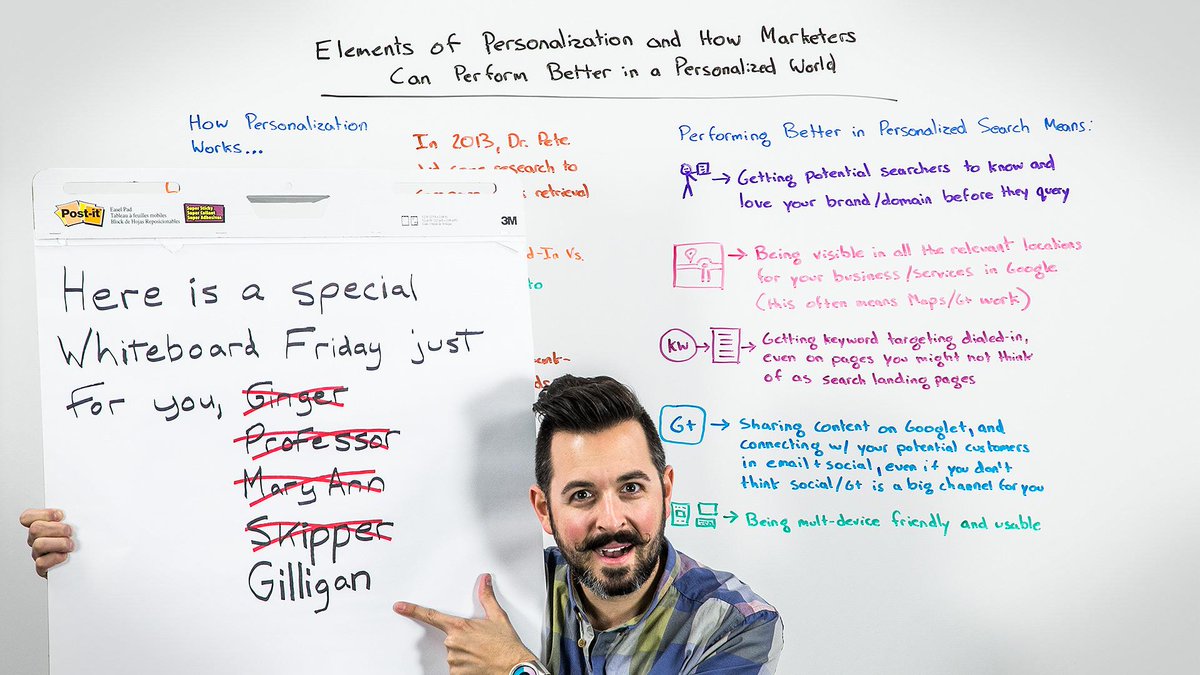 Elements of Personalization and How Marketers
Can Perform Better in a Personalized World
How Personalization
Works...
In 2013, Dr. Pete
research to
retrieval
d-In Vs.
to
Post-it
Easel Pad
Tableau à feuilles mobiles
Block de Hojas Reposicionables
Super Sticky
3M
Here is a special
Whiteboard Friday just
for you, Ginger
Professor
Mary Ann
Skipper
Gilligan
Performing Better in Personalized Search Means:
Getting potential searchers to know and
love your brand/domain before they query
Being visible in all the relevant locations
for your business/services in Google
(this often means Maps/G+ work)
KW
Getting keyword targeting dialed-in,
even on pages you might not think
of as search landing pages
G+
Sharing content on Google+, and
connecting w/ your potential customers
in email + social, even if you don't
think social/G+ is a big channel for you
Being mult-device friendly and usable